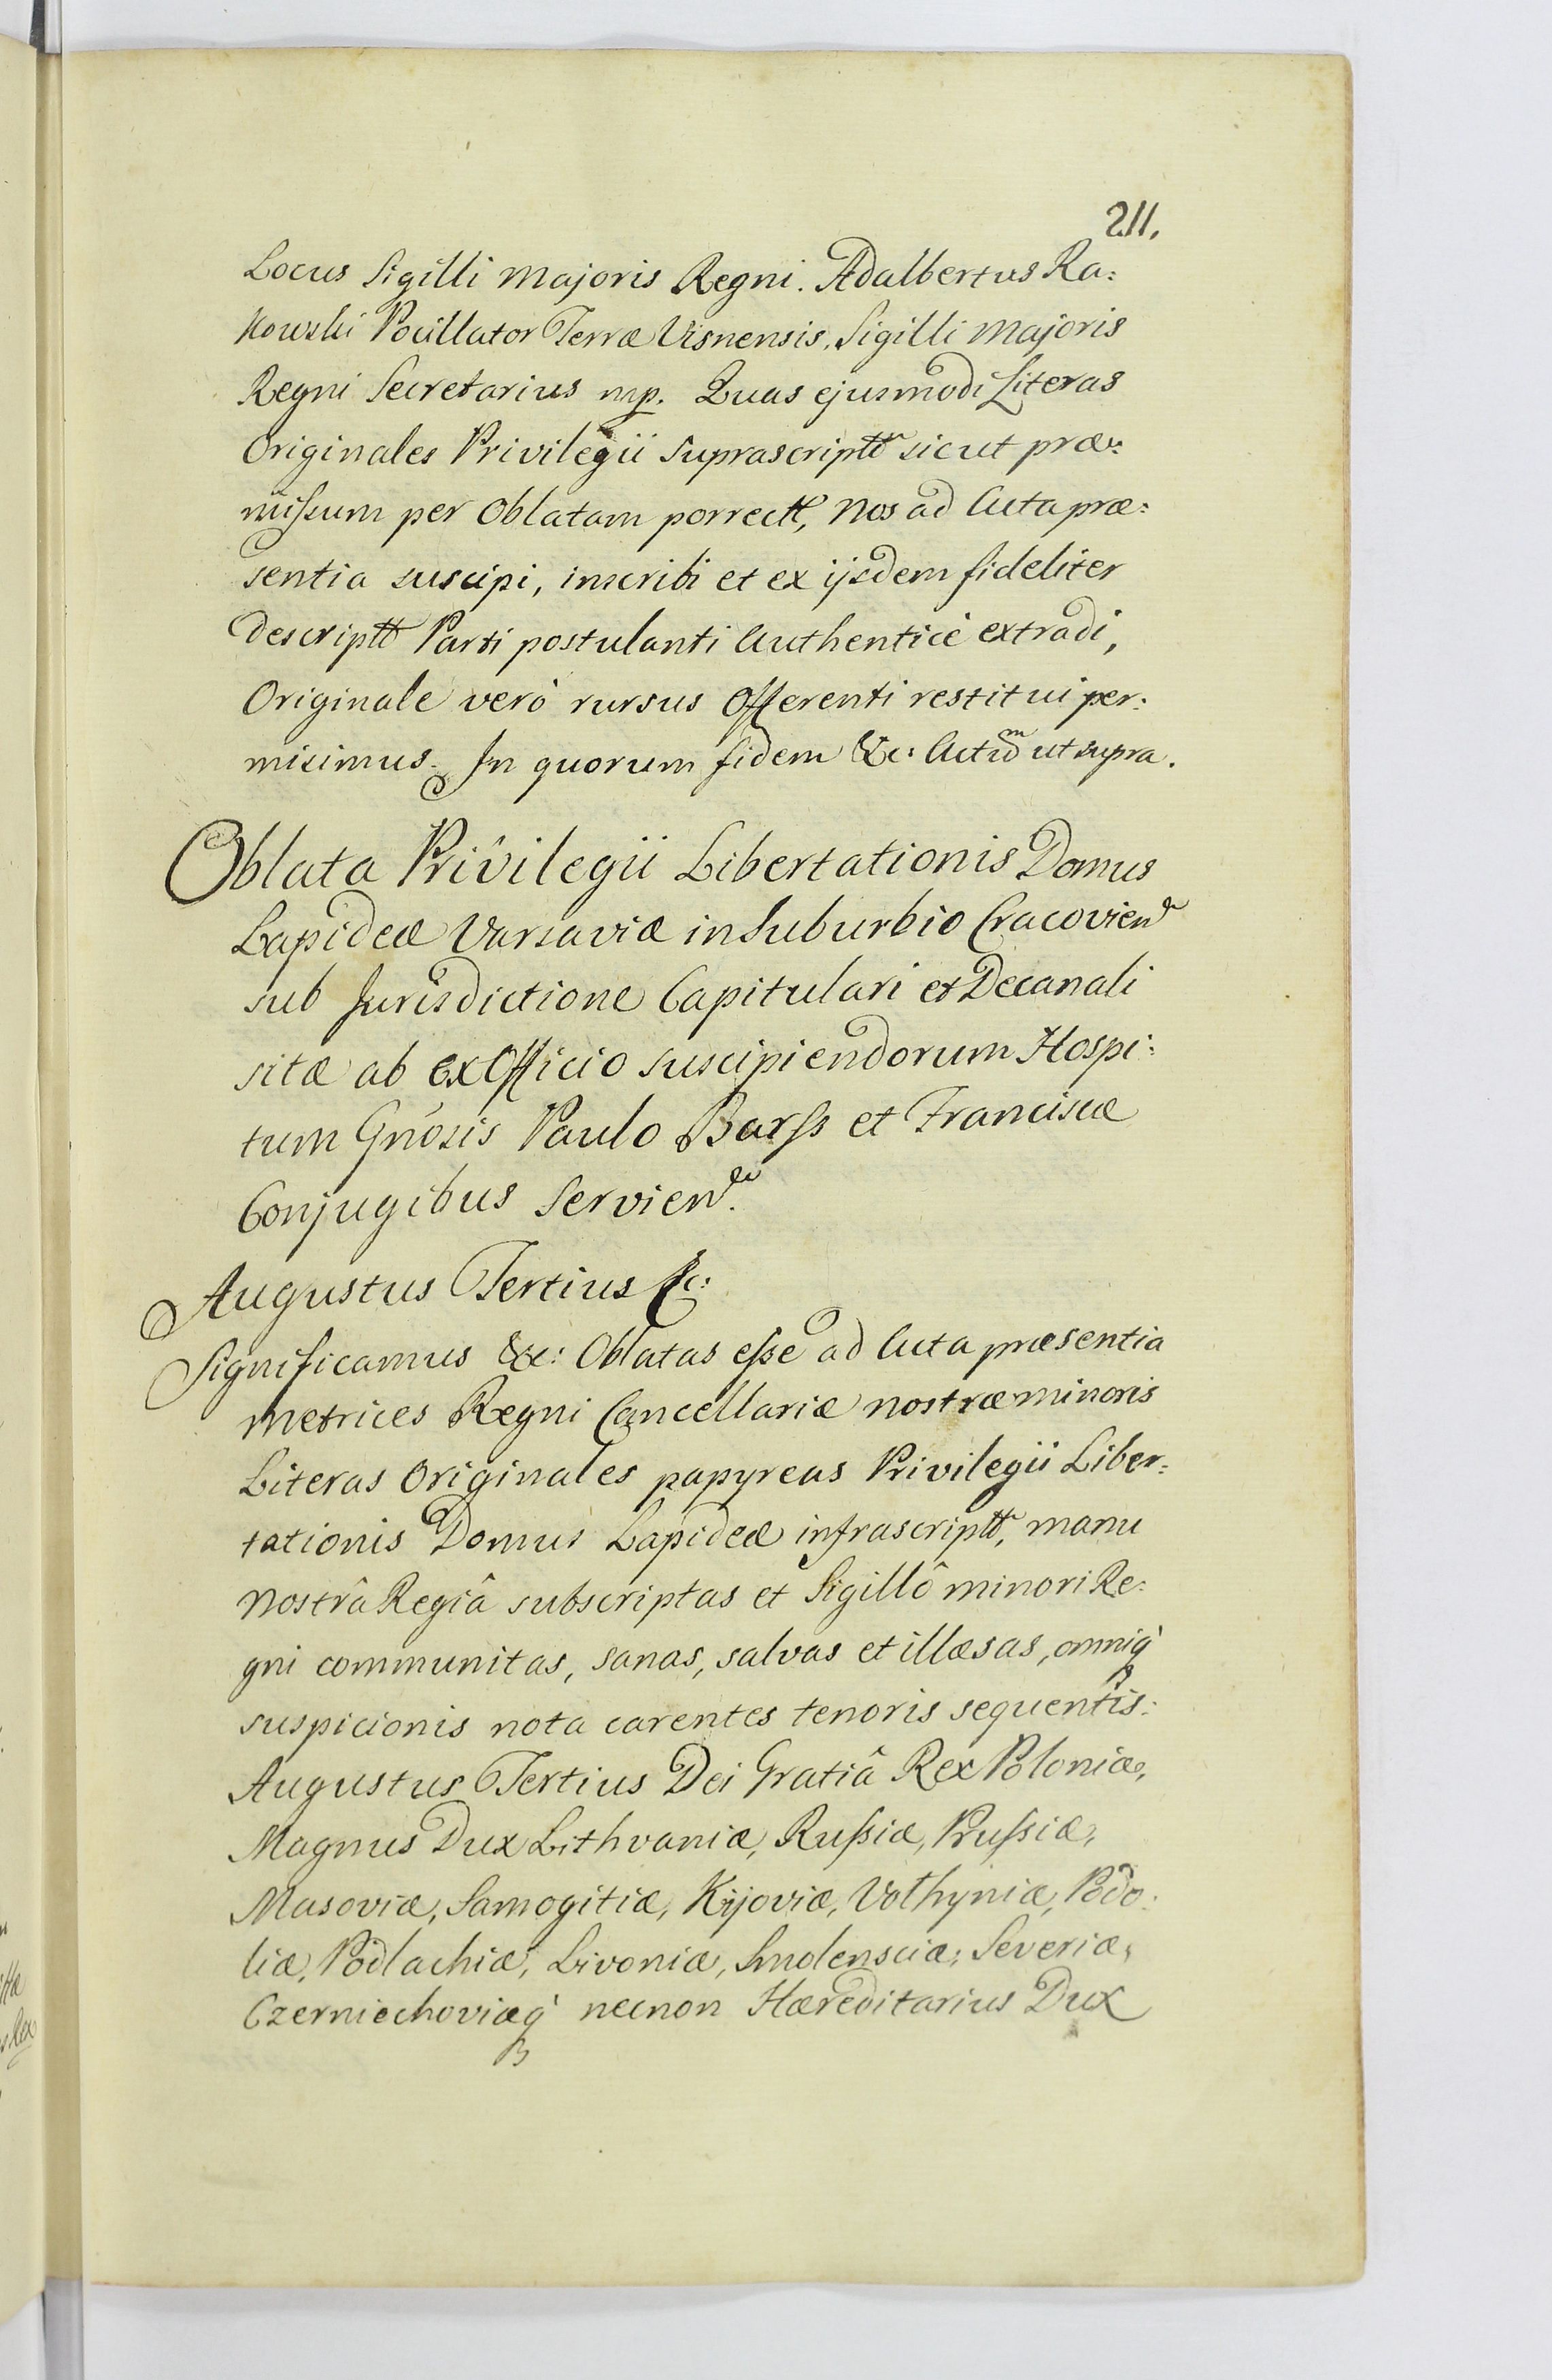 211.
Locus Sigilli Majoris Regni. Adalbertus Ra:
kowski Pocillator Terræ Visnensis, Sigilli Majoris
Regni Secretarius mp. Quas ejusmodi Literas
Originales Privilegii suprascriptt sicut præ:
missum per Oblatam porrectt, Nos ad Acta præ:
sentia suscipi, inscribi et ex ijsdem fideliter
descriptt Parti postulanti Authenticè extradi,
Originale verò rursus Offerenti restitui per:
misimus. In quorum fidem &c: Actum ut supra.
Oblata Privilegii Libertationis Domus
Lapideæ Varsaviæ in Suburbio Cracovien
sub Jurisdictione Capitulari et Decanali
sitæ ab ex Officio suscipiendorum Hospi:
tum Gnósis Paulo Barss et Franciscæ
Conjugibus Servien.
Augustus Tertius &c:
Significamus &c: Oblatas esse ad Acta præsentia
Metrices Regni Cancellariæ nostræ minoris
Literas Originales papyreas Privilegii Liber:
tationis Domus Lapideæ infrascriptt, manu
Nostrâ Regiâ subscriptas et Sigillô minori Re:
gni communitas, sanas, salvas et illæsas, omniq
suspicionis nota carentes tenoris sequentis:
Augustus Tertius Dei Gratiâ Rex Poloniæ,
Magnus Dux Lithvaniæ, Russiæ, Prussiæ,
Masoviæ, Samogitiæ, Kijoviæ, Volhyniæ, Podo:
liæ, Podlachiæ, Livoniæ, Smolensciæ, Severiæ,
Czerniechoviæq necnon Hæreditarius Dux